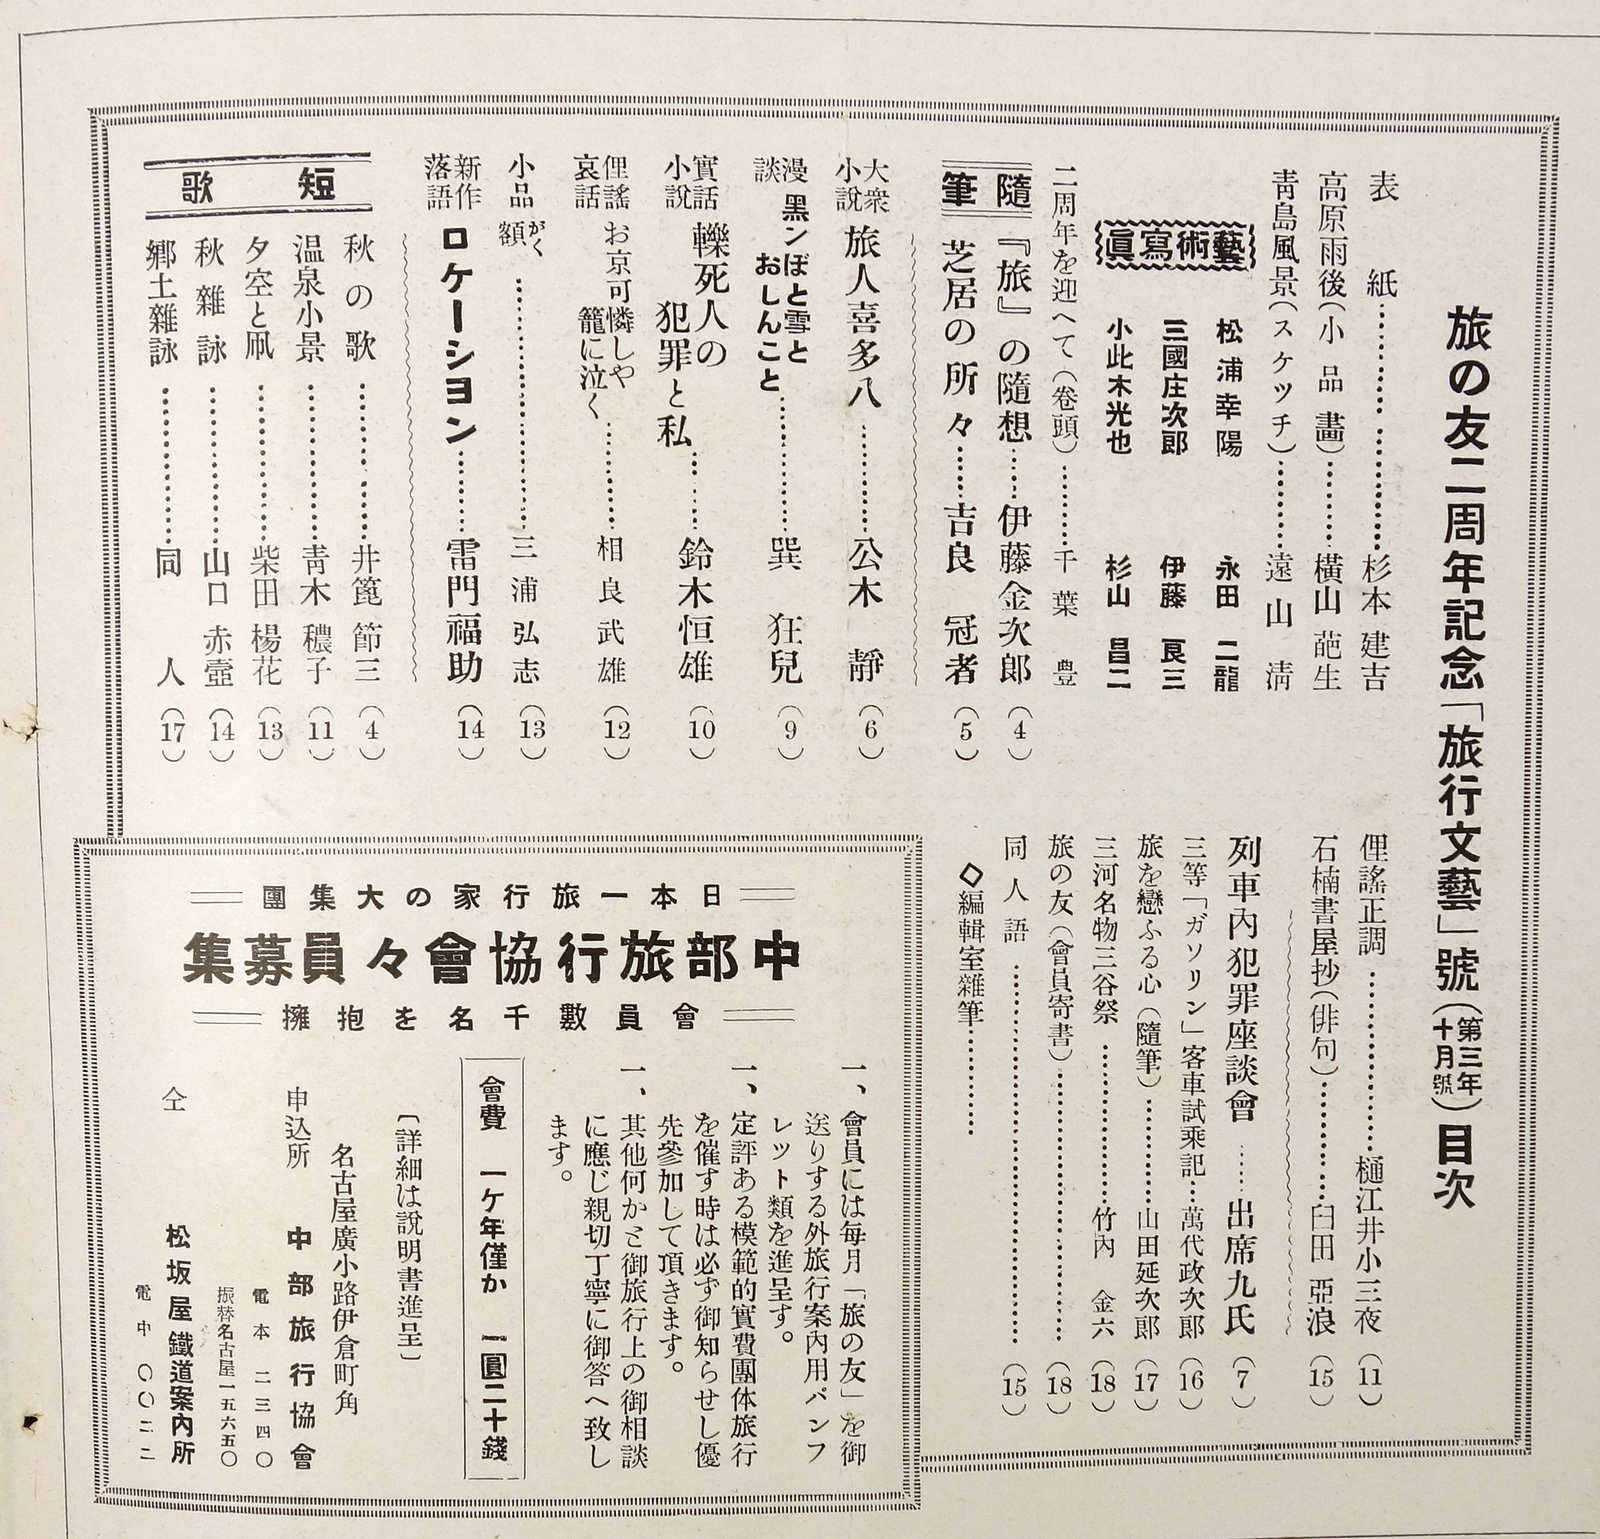 旅の友二周年記念「旅行文藝」號（第三年十月號）目次
表紙………杉本建吉
高原雨後（小品畵）………橫山葩生
靑島風景（スケッチ）………遠山淸
藝術寫眞
松浦幸陽　永田二龍
三國庄次郎　伊藤良三
小此木光也　杉山昌二
二周年を迎へて（卷頭）………千葉豊
隨筆
『旅』の隨想……伊藤金次郎（4）
芝居の所々……吉良冠者（5）
大衆小說　旅人喜多八………公木靜（6）
漫談　黑ンぼと雪とおしんこと………巽狂兒（9）
實話小說　轢死人の犯罪と私………鈴木恒雄（10）
俚謠哀話　お京可憐しや籠に泣く………相良武雄（12）
小品　額がく………三浦弘志（13）
新作落語　ロケーション………雷門福助（14）
短歌
秋の歌………井箆節三（4）
温泉小景………靑木穠子（11）
夕空と凧………柴田楊花（13）
秋雜詠………山口赤壺（14）
鄕土雜詠………同人（17）
俚謠正調………樋江井小三夜（11）
石楠書屋抄（俳句）………臼田亞浪（15）
列車內犯罪座談會……出席九氏（7）
三等「ガソリン」客車試乘記…萬代政次郎（16）
旅を戀ふる心（隨筆）………山田延次郎（17）
三河名物三谷祭………竹內金六（18）
旅の友（會員寄書）………（18）
同人語………（15）
◇編輯室雜筆………
日本一旅行家の大集團
中部旅行協會々員募集
會員數千名を抱擁
一、會員には每月「旅の友」を御
送りする外旅行案內用パンフ
レット類を進呈す。
一、定評ある模範的實費團体旅行
を催す時は必ず御知らせし優
先參加して頂きます。
一、其他何かと御旅行上の御相談
に應じ親切丁寧に御答へ致し
ます。
會費　一ケ年僅か　一圓二十錢
〔詳細は說明書進呈〕
名古屋廣小路伊倉町角
申込所　中部旅行協會
電本二三四〇
振替名古屋一五六五〇
仝　松坂屋鐵道案內所
電中〇〇二二